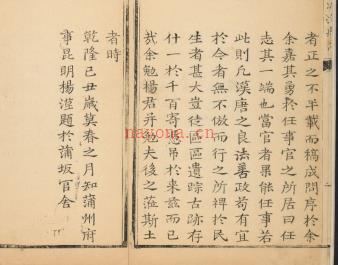 者正之不半載而稿成問序於余
余嘉其勇於任事官之所居曰任
志其一端也當官者果能任事若
此則凡漢唐之良法善政苟有宜
於今者無不倣而行之所裨於民
生者甚大豈徒區區遺踪古跡存
什一於千百寄憑吊於來茲而已
哉余勉楊君并勉夫後之蒞斯土
者時
乾隆己丑歲莫春之月知蒲州府
事昆明楊瀅題於蒲坂官舍
nayona.cn